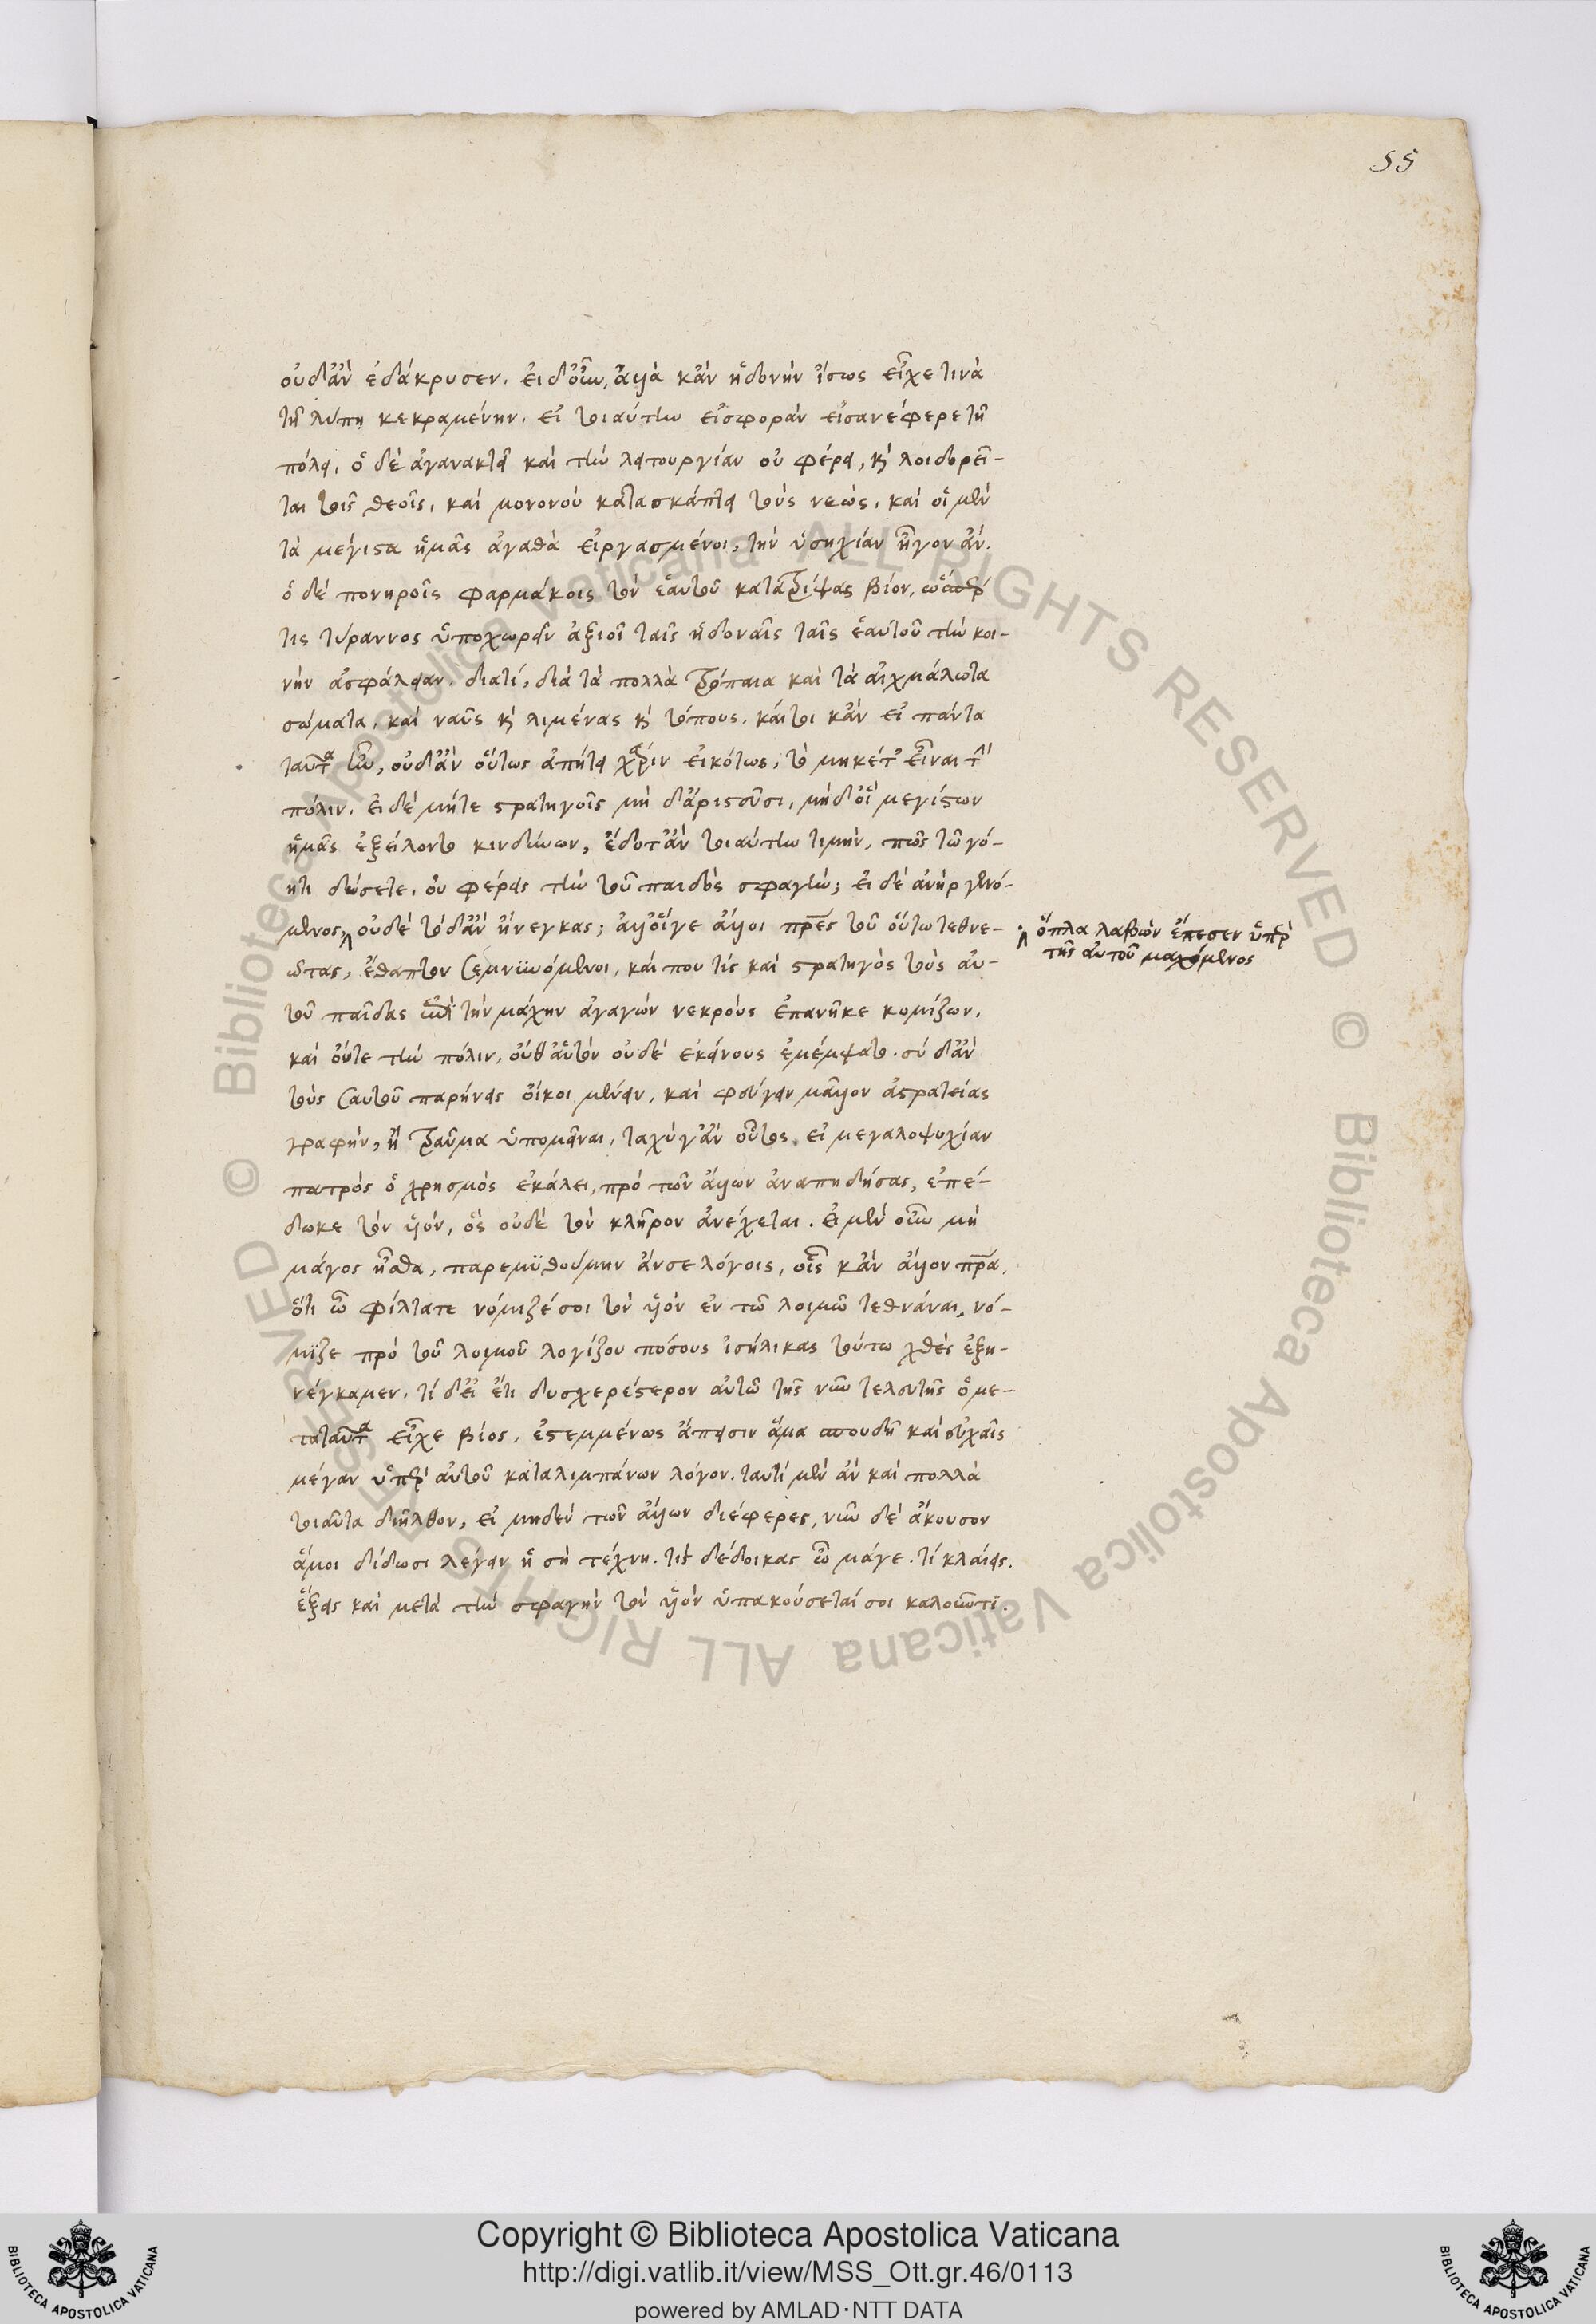 55
οὐδ' ἂν ἐδάκρυσεν. εἰ δ' οὖν, ἀλλὰ κἂν ἡδονὴν ἴσως εἶχε τινὰ
τῇ λύπῃ κεκραμένην. εἰ τοιαύτην εἰσφορὰν εἰσανέφερε τῇ
πόλει, ὁ δὲ ἀγανακτεῖ καὶ τὴν λειτουργίαν οὐ φέρει, καὶ λοιδορεῖ-
ται τοῖς θεοῖς, καὶ μονονοὺ κατασκάπτει τοὺς νεώς. καὶ οἱ μὲν
τὰ μέγιστα ἡμᾶς ἀγαθὰ εἰργασμένοι, τὴν ἡσυχίαν ἦγον ἄν.
ὁ δὲ πονηροῖς φαρμάκοις τὸν ἑαυτοῦ κατατρίψας βίον, ὥσπερ
τις τύραννος ὑποχωρεῖν ἀξιοῖ ταῖς ἡδοναῖς ταῖς ἑαυτοῦ τὴν κοι-
νὴν ἀσφάλειαν. διατί, διὰ τὰ πολλὰ τρόπαια καὶ τὰ αἰχμάλωτα
σώματα, καὶ ναῦς καὶ λιμένας καὶ τόπους. καίτοι κἂν εἰ πάντα
ταῦτα ἦν, οὐδ' ἂν οὕτως ἀπῄτει χάριν εἰκότως, τὸ μηκέτ' εἶναι τὴν
πόλιν. εἰ δὲ μήτε στρατηγοῖς μὴ δ' ἀριστοῦσι, μὴ δ' οἳ μεγίστων
ἡμᾶς ἐξείλοντο κινδύνων, ἔδοτ' ἂν τοιαύτην τιμὴν, πῶς τῷ γό-
ητι δώσετε. οὐ φέρεις τὴν τοῦ παιδὸς σφαγήν; εἰ δὲ ἀνὴρ γενό-
μενος, οὐδὲ τόδ' ἂν ἤνεγκας; ἀλλ' οἵγε ἄλλοι πατέρες τοὺ οὕτω τεθνε-
ῶτας, ἔθαπτον σεμνυνόμενοι, καί που τίς καὶ στρατηγὸς τοὺς αὑ-
τοῦ παῖδας ἐπὶ τὴν μάχην ἀγαγὼν νεκροὺς ἐπανῆκε κομίζων.
καὶ οὔτε τὴν πόλιν, οὔθ' αὑτὸν οὐδὲ ἐκείνους ἐμέμψατο. σὺ δ' ἂν
τοὺς σαυτοῦ παρῄνεις οἴκοι μένειν, καὶ φεύγειν μᾶλλον ἀστρατείας
γραφὴν, ἢ τραῦμα ὑπομεῖναι. ταχύ γ' ἂν οὗτος, εἰ μεγαλοψυχίαν
πατρὸς ὁ χρησμὸς ἐκάλει, πρὸ τῶν ἄλλων ἀναπηδήσας, ἐπέ-
δωκε τὸν υἱόν, ὃς οὐδὲ τὸν κλῆρον ἀνέχεται. εἰ μὲν οὖν μὴ
μάγος ἦσθα, παρεμυθούμην ἄν σε λόγοις, οἷς κἂν ἄλλον πατέρα,
ὅτι ὦ φίλτατε νόμιζέ σοι τὸν υἱὸν ἐν τῷ λοιμῷ τεθνάναι, νό-
μιζε πρὸ τοῦ λοιμοῦ λογίζου πόσους ἰσήλικας τούτῳ χθὲς ἐξη-
νέγκαμεν. τί δεῖ ἔτι δυσχερέστερον αὐτῷ τῆς νῦν τελευτῆς ὁ με-
τὰ ταῦτα εἶχε βίος, ἐστεμμένως ἄπεισιν ἅμα σπουδῇ καὶ εὐχαῖς
μέγαν ὑπὲρ αὑτοῦ καταλιμπάνων λόγον. ταυτὶ μὲν ἂν καὶ πολλὰ
τοιαῦτα διῆλθον, εἰ μηδὲν τῶν ἄλλων διέφερες, νῦν δὲ ἄκουσον
ἅ μοι δίδωσι λέγειν ἡ σὴ τέχνη. τί δέδοικας ὦ μάγε. τί κλαίεις.
ἕξεις καὶ μετὰ τὴν σφαγὴν τὸν υἱὸν ὑπακούσεταί σοι καλοῦντι.
ὅπλα λαβὼν ἔπεσεν ὑπὲρ
τῆς αὐτοῦ μαχόμενος
© Biblioteca Apostolica Vaticana ALL RIGHTS RESERVED © Biblioteca Apostolica Vaticana ALL RIGHTS RESERVED
Copyright © Biblioteca Apostolica Vaticana
http://digi.vatlib.it/view/MSS_Ott.gr.46/0113
powered by AMLAD·NTT DATA
BIBLIOTECA APOSTOLICA VATICANA
BIBLIOTECA APOSTOLICA VATICANA